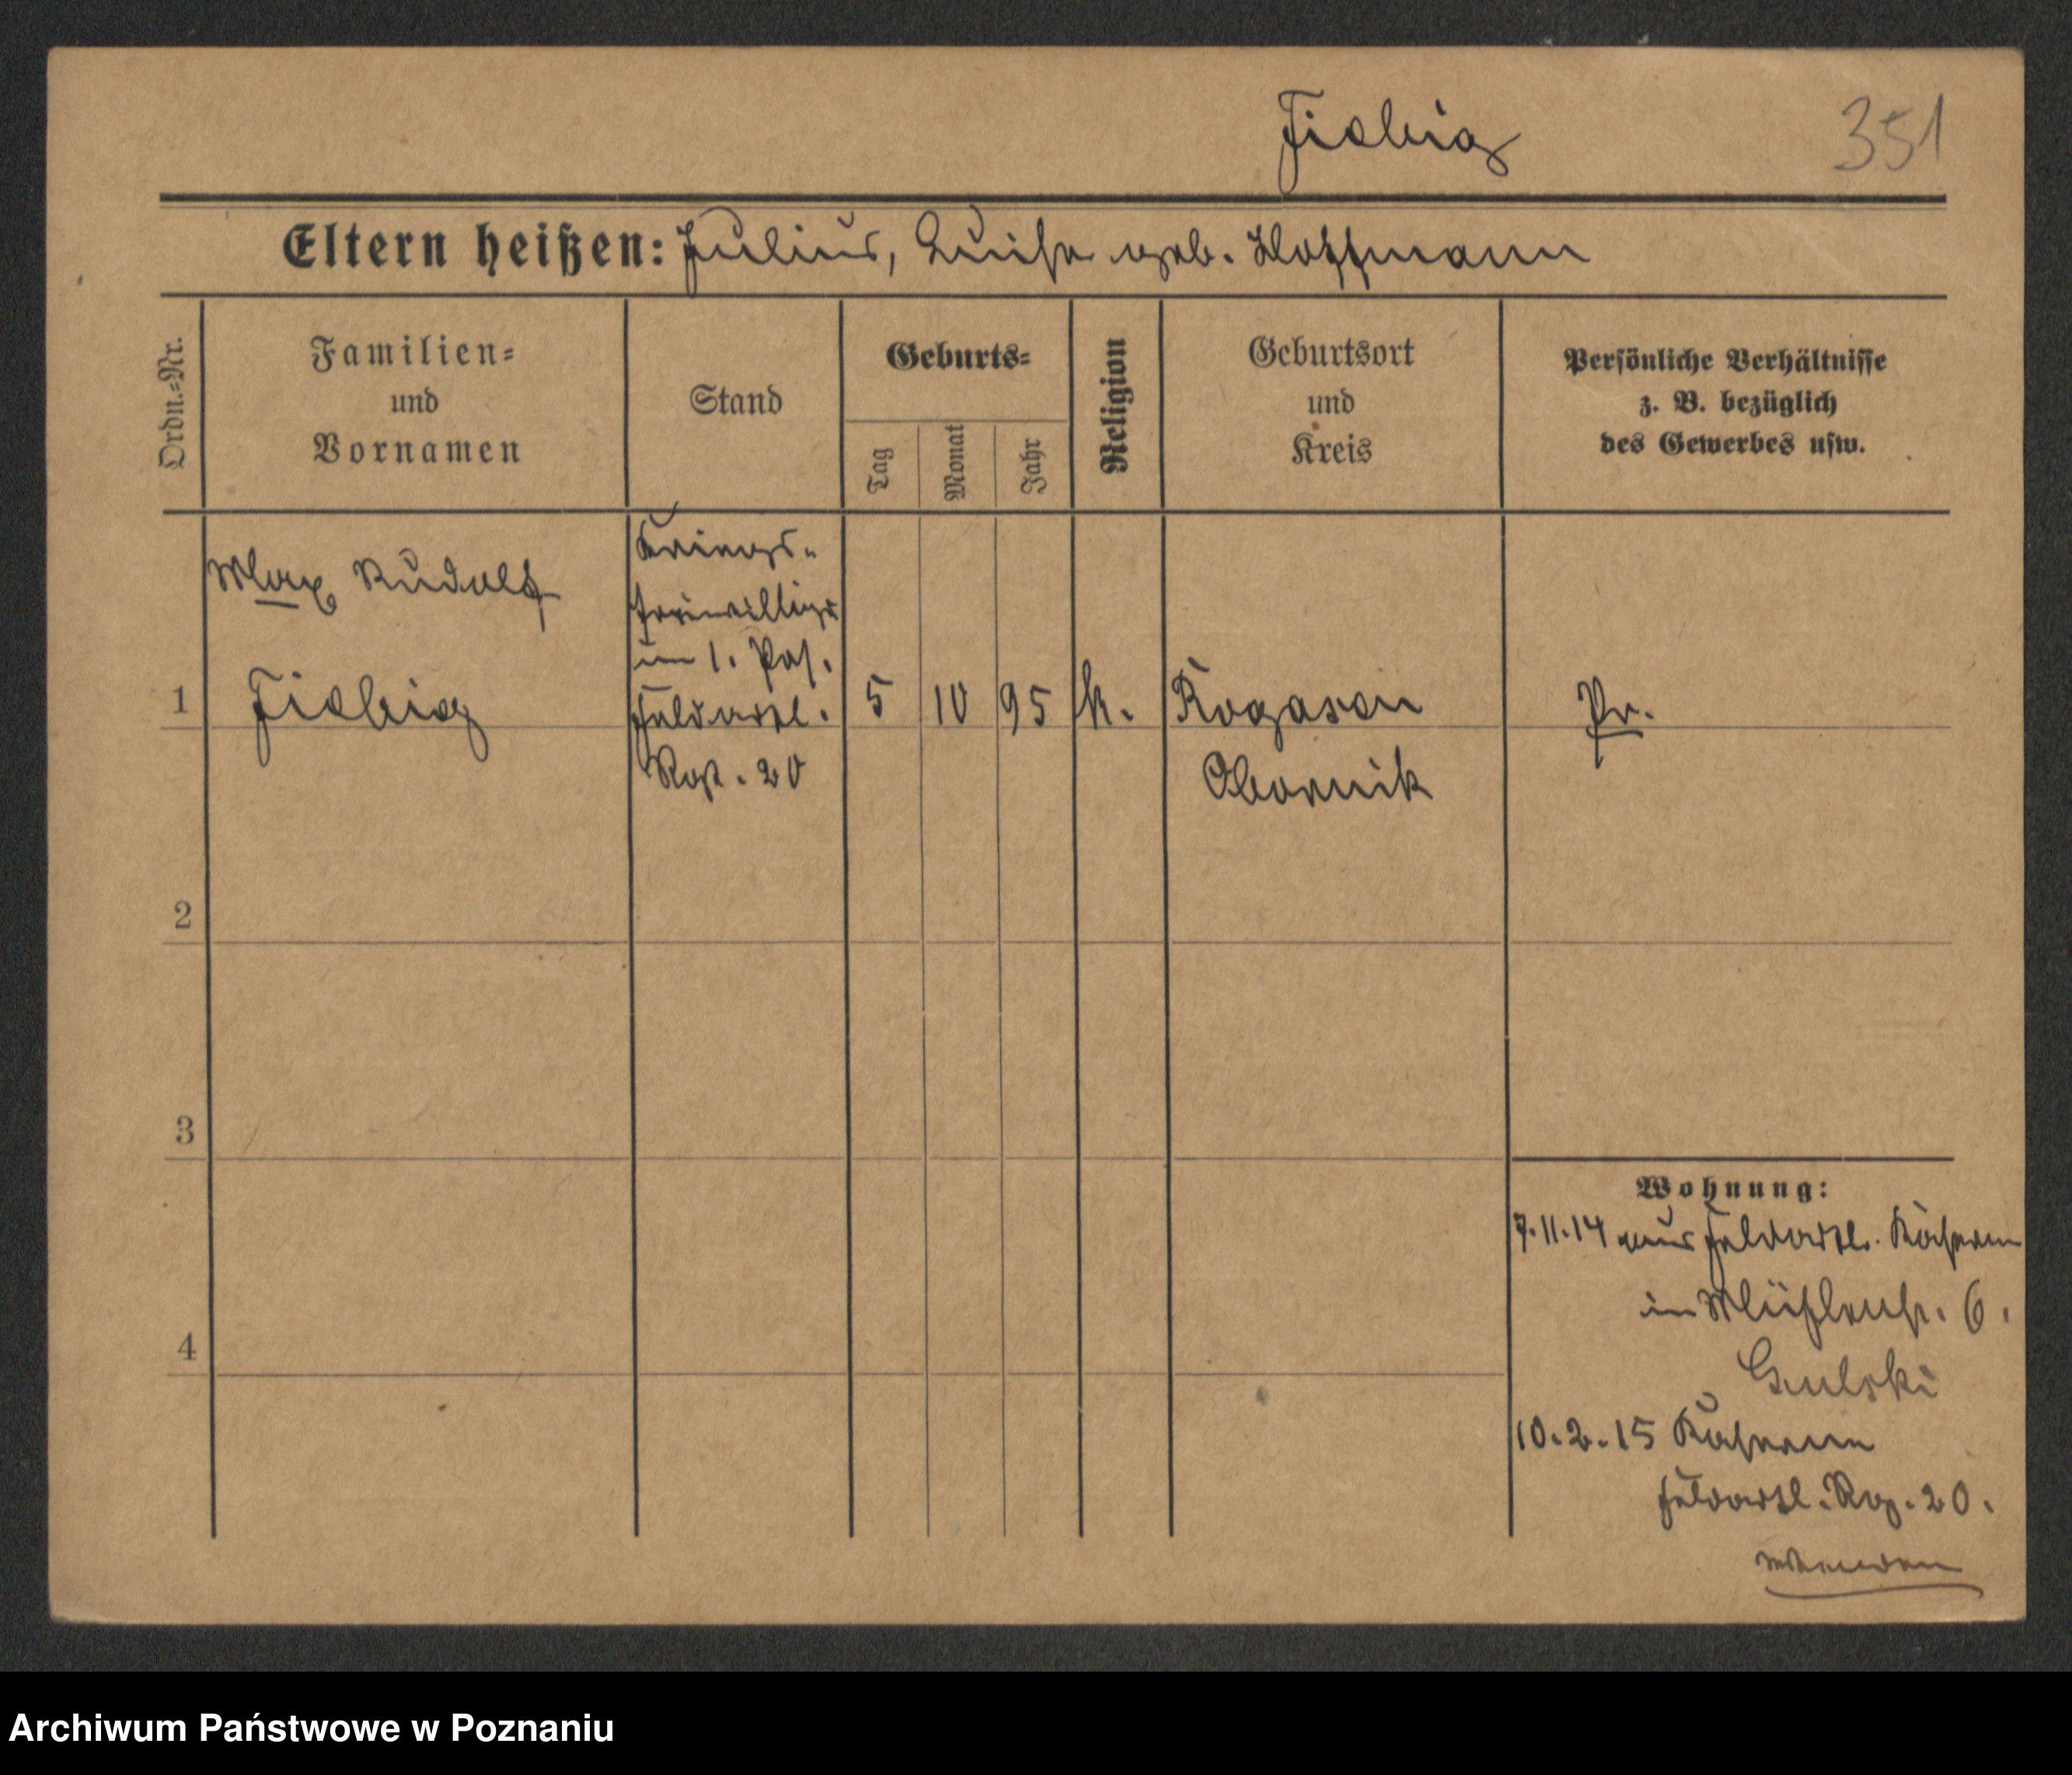 Fiebig 351
Eltern heißen: Julius, Luise geb. Hoffmann
Ordn.=Nr.
Familien=
und
Vornamen
Stand
Geburts=
Tag
Monat
Jahr
Religion
Geburtsort
und
Kreis
Persönliche Verhältnisse
z. B. bezüglich
des Gewerbes usw.
1
Max Rudolf
Fiebig
Kriegs-
freiwilliger
im 1. Pos.
Feldartl.
Regt. 20
5
10
95
k.
Rogasen
Obornik
Pr.
2
3
4
Wohnung:
7.11.14 aus Feldartl. Kaserne
in Mühlenstr. 6.
Gulski
10.2.15 Kaserne
Feldartl. Reg. 20.
wenden
Archiwum Państwowe w Poznaniu